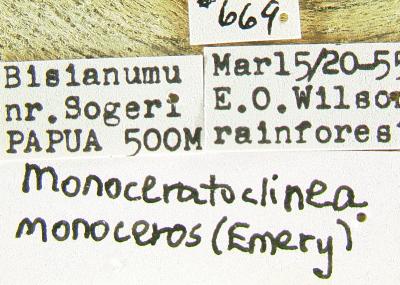 #669
Bisianumu Mar15/20-55
nr. Sogeri E.O.Wilson
PAPUA 500M rainfores
Monoceratoclinea
monoceros (Emery)